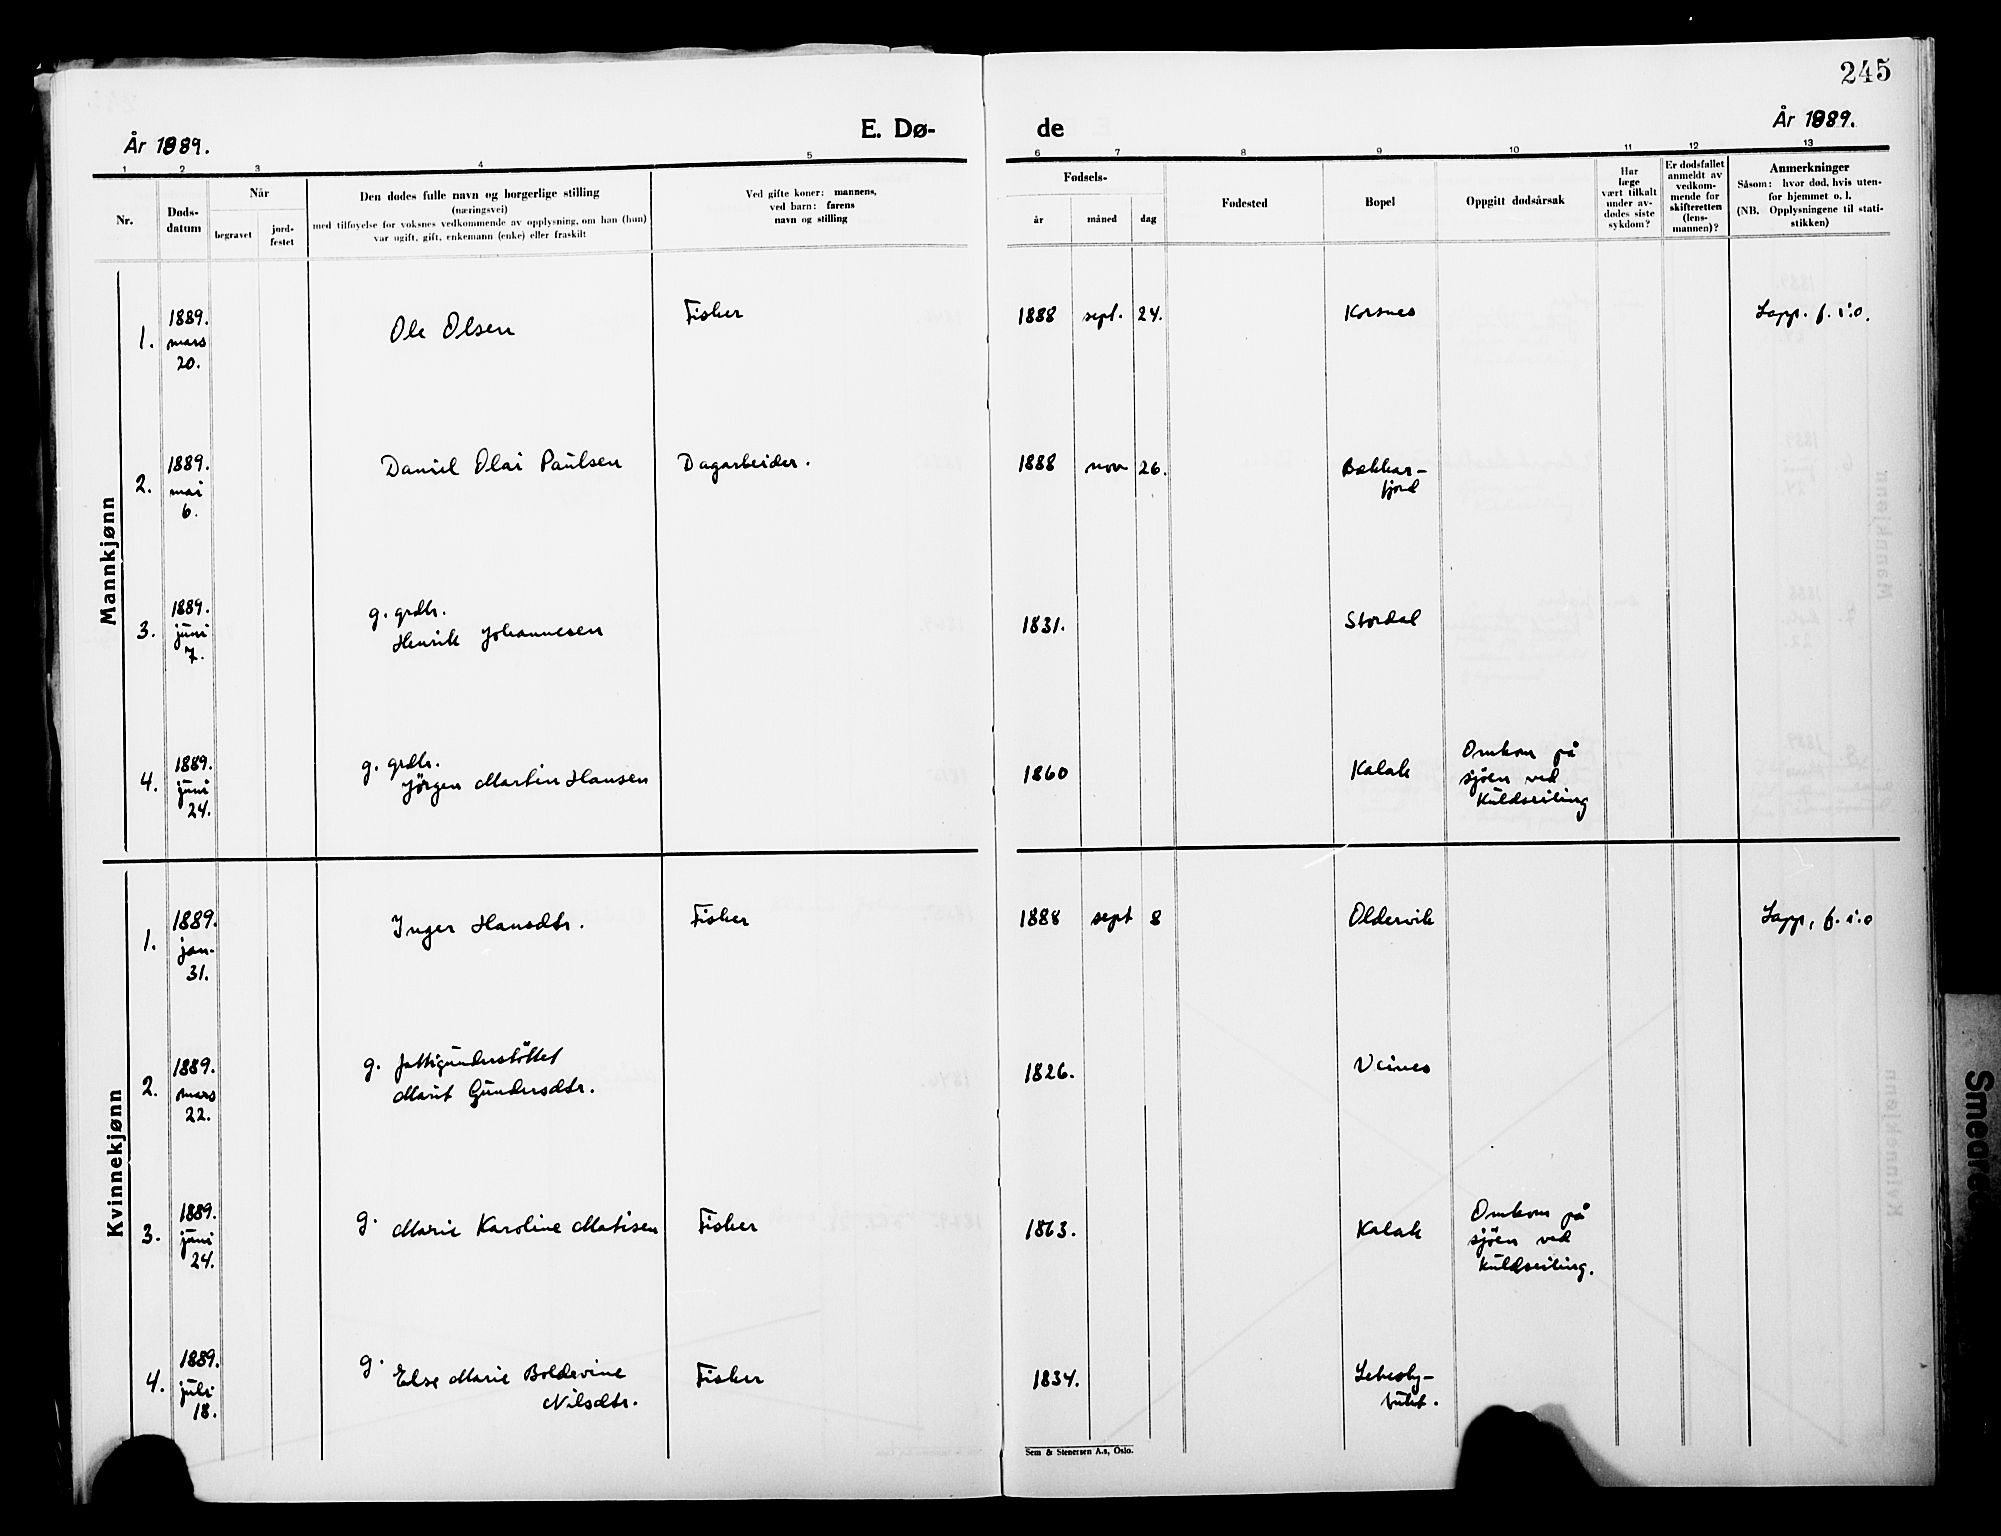 245
År 1889.
E. Dø-
de
År 1889.
1 2 3 4 5 6 7 8 9 10 11 12 13
Nr.
Døds-
datum
Når
begravet
jord-
festet
Den dødes fulle navn og borgerlige stilling
(næringsvei)
med tilføyelse for voksnes vedkommende av opplysning, om han (hun)
var ugift, gift, enkemann (enke) eller fraskilt
Ved gifte koner: mannens,
ved barn: farens
navn og stilling
Fødsels-
år
måned
dag
Fødested
Bopel
Oppgitt dødsårsak
Har
læge
vært tilkalt
under av-
dødes siste
sykdom?
Er dødsfallet
anmeldt av
vedkom-
mende for
skifteretten
(lens-
mannen)?
Anmerkninger
Såsom: hvor død, hvis uten-
for hjemmet o. l.
(NB. Opplysningene til stati-
stikken)
Mannkjønn
1.
1889.
mars
20.
Ole Olsen
Fisker
1888 sept. 24.
Korsnes
Lapp. f. i. o.
2.
1889.
mai
6.
Daniel Olai Paulsen
Dagarbeider.
1888 nov 26.
Bekkar-
fjord
3.
1889.
juni
7.
g. grdbr.
Henrik Johannesen
1831.
Stordal
4.
1889.
juni
24.
g. grdbr.
Jörgen Martin Hansen
1860
Kalak
Omkom på
sjöen ved
Kuldseiling
Kvinnekjønn
1.
1889.
jan.
31.
Inger Hansdtr.
Fisker
1888 sept 8
Oldervik
Lapp, f. i. o
2.
1889.
mars
22.
g. fattigunderstöttet
Marit Gundersdtr.
1826.
Veines
3.
1889.
juni
24.
g. Marie Karoline Matisen
Fisker
1863.
Kalak
Omkom på
sjöen ved
kuldseiling.
4.
1889.
juli
18.
g. Else Marie Boldevine
Nilsdtr.
Fisker
1834.
Lebesby-
Sem & Stenersen A.s, Oslo.